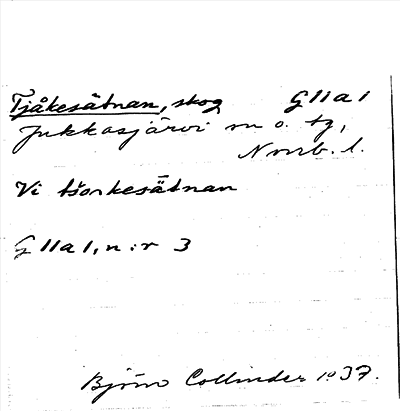 Tjåkesätnan, skog G 11a 1
Jukkasjärvi sn o. tg,
Norrb. l.
Vi tšorkesätnan
G 11a 1, n:r 3
Björn Collinder 1937.